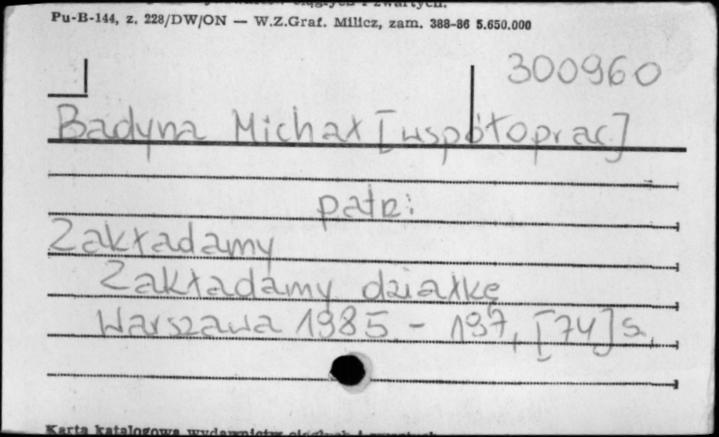 Pu-B-144, z. 228/DW/ON — W.Z.Graf. Milicz, zam. 388-86 5.650.000
300960
Badyna Michał [współoprac.]
patrz:
Zakładamy
Zakładamy działkę
Warszawa 1985. - 197, [74] s.
Karta katalogowa wydawnictw ciągłych i zwartych